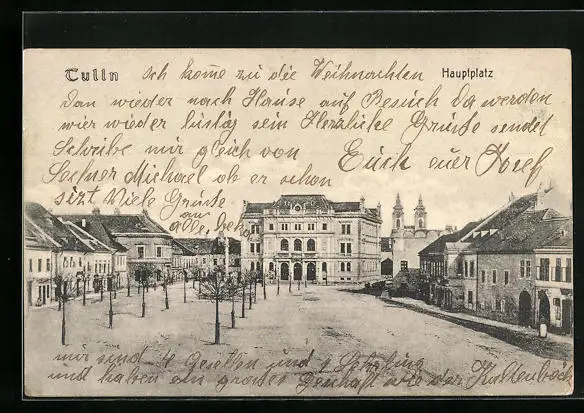 Tulln
Hauptplatz
Ich kome zu die Weihnachten
Dan wieder nach Hause auf Besuch Da werden
wier wieder lustig sein Herzliche Grüße sendet
Schreibe mir gleich von Euch euer Josef
Sechser Michael ob er schon
sizt Viele Grüße
an
alle
mir sind 4 Gesellen und 1 Lehrling
und haben ein großes Geschäft wie der Kaltenböck